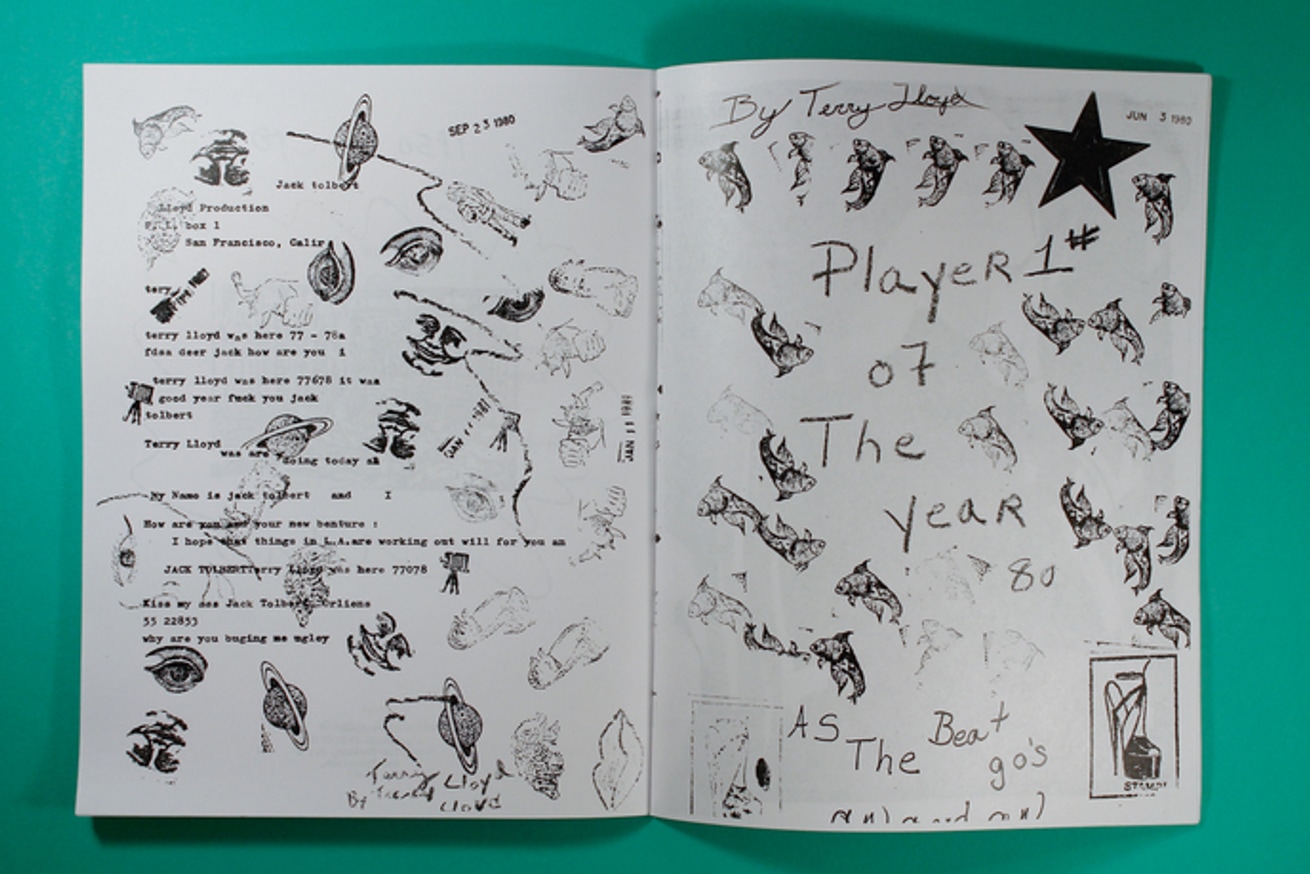 SEP 23 1980
Jack tolbert
Lloyd Production
box 1
San Francisco, Calif
tery
terry lloyd was here 77 - 78a
fdsa deer jack how are you i
terry lloyd was here 77678 it was
good year fuck you jack
tolbert
Terry Lloyd
was are doing today
JAN 11 1981
JAN 11 1981
My Name is jack tolbert and I
How are you and your new benture :
I hope that things in L.A.are working out will for you am
JACK TOLBERTTerry Lloyd was here 77078
Kiss my ass Jack Tolbert Orliens
55 22853
why are you buging me mgley
Terry Lloyd
By Lloyd
By Terry Lloyd
JUN 3 1980
Player 1#
of
The
year
80
AS The Beat go's
on) and on)
STAMP!